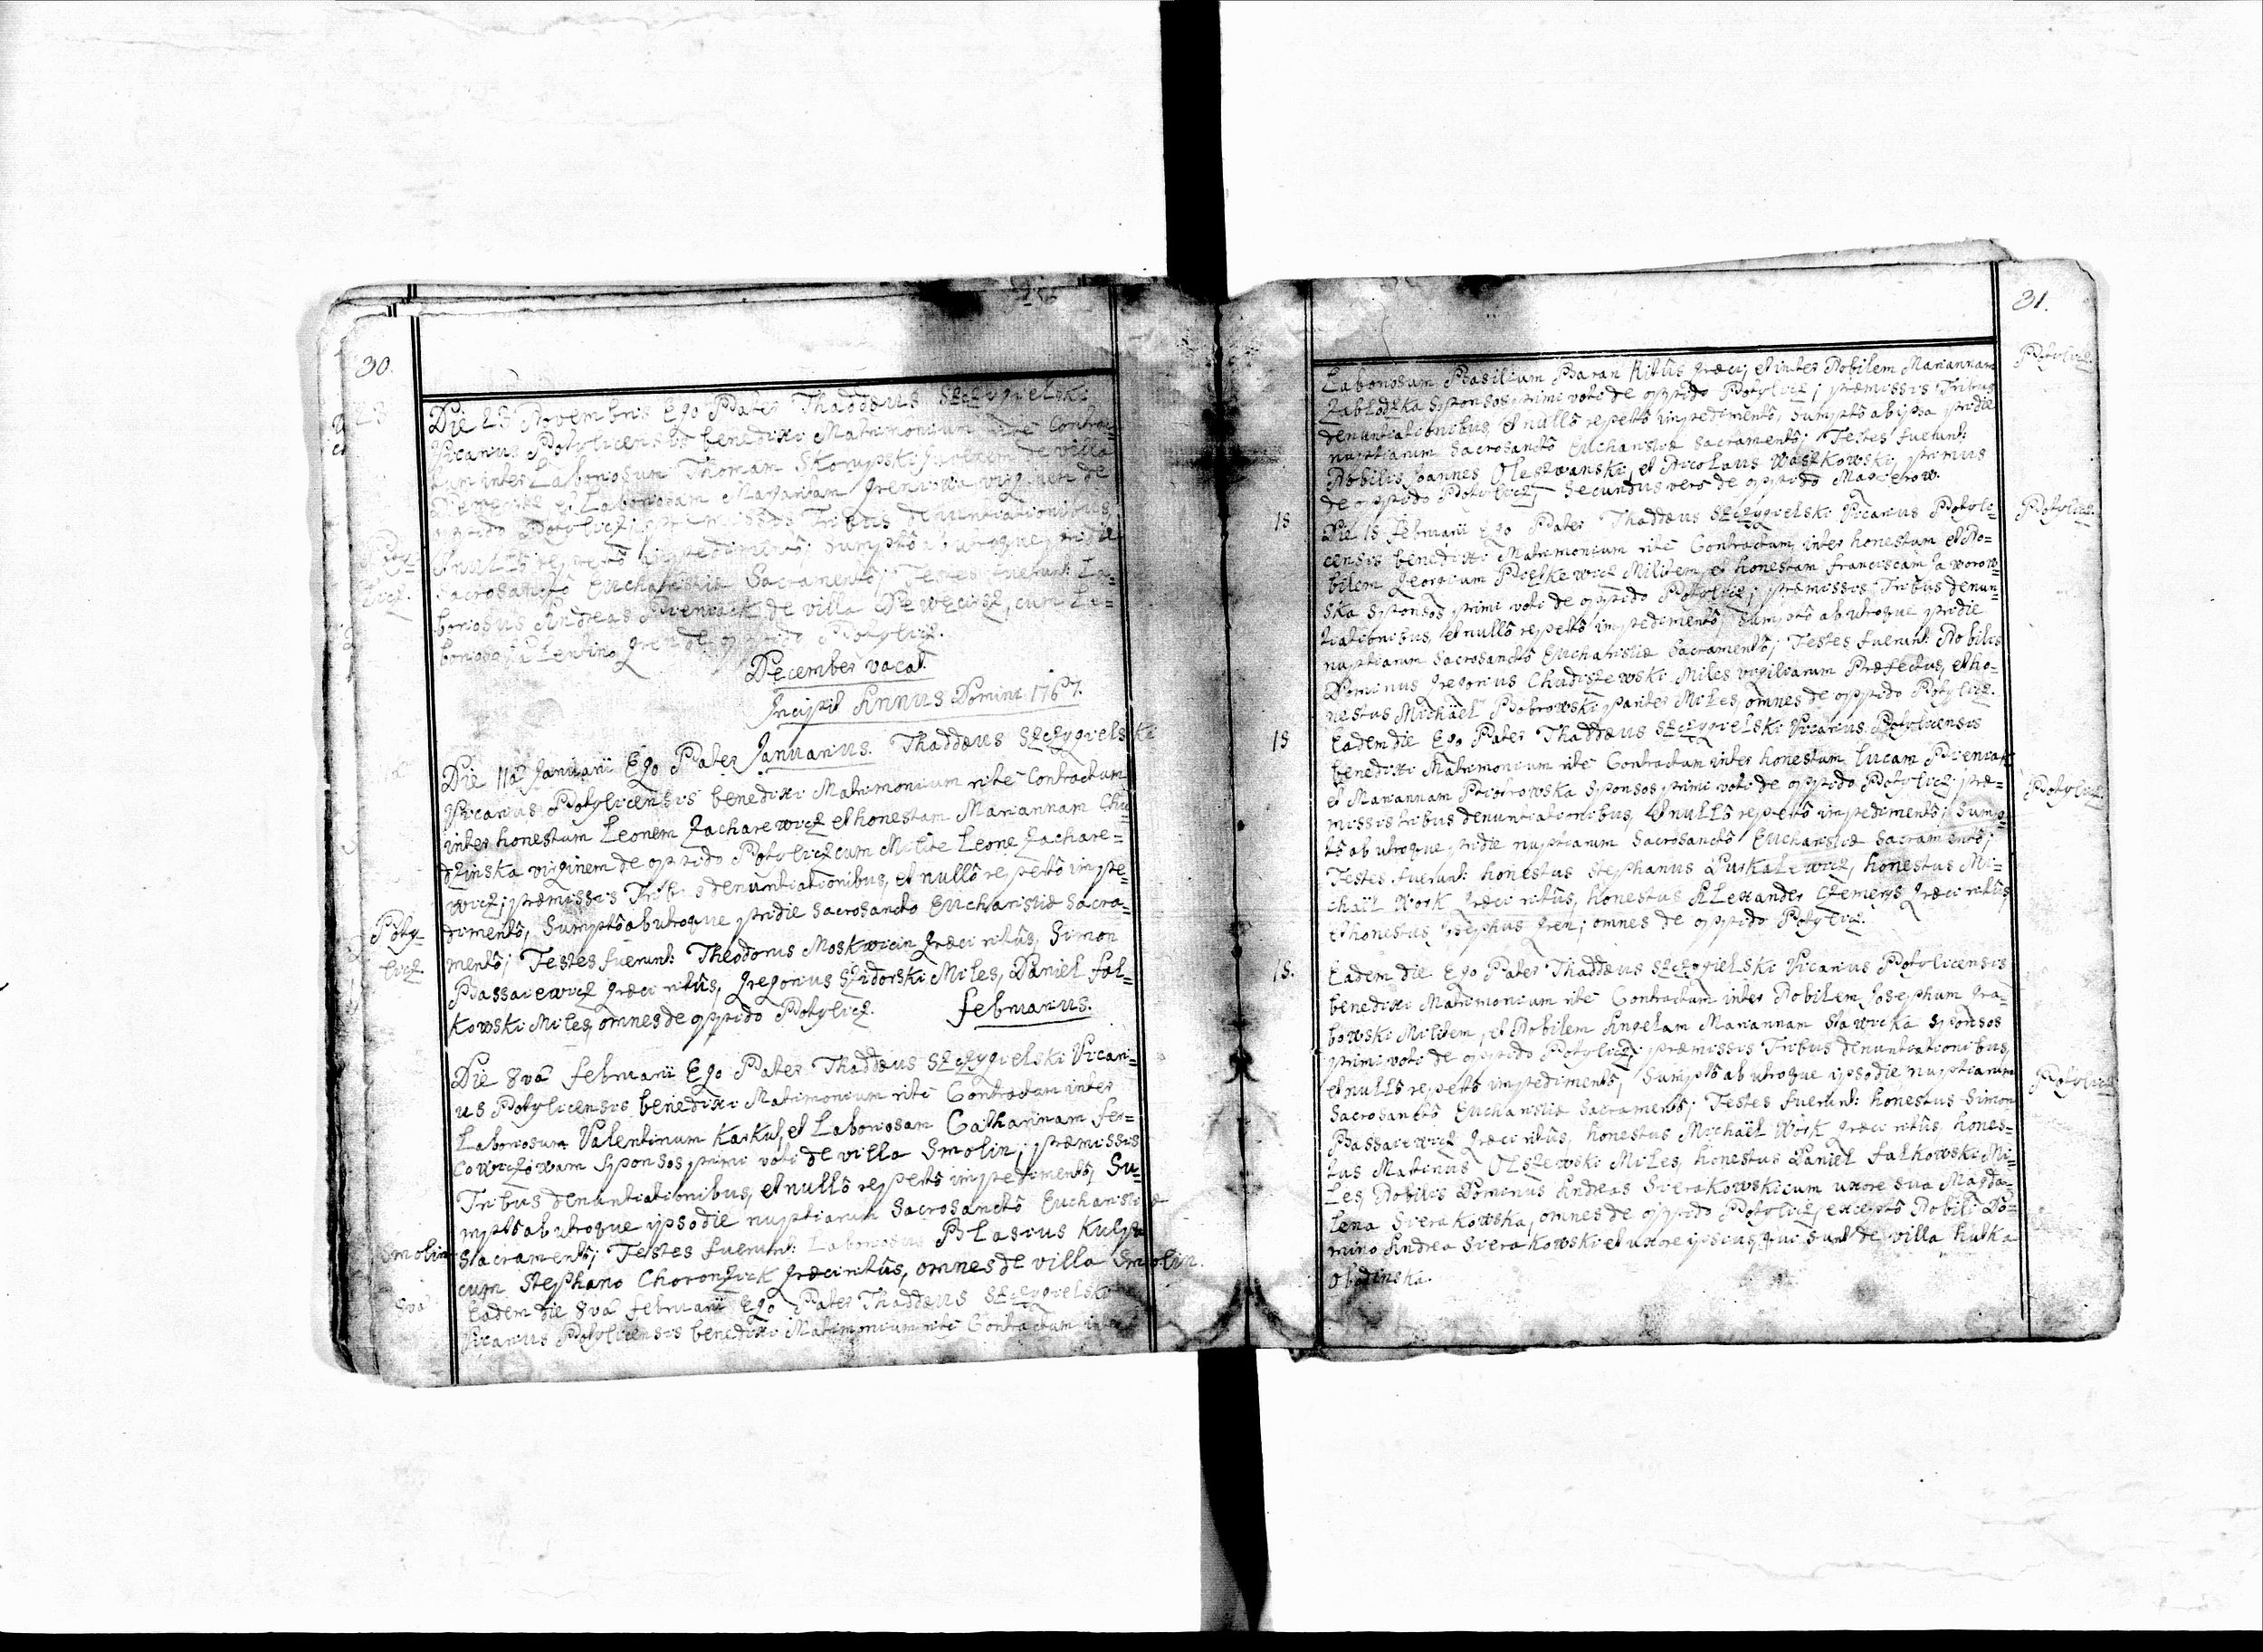 30.
23
Die 23 Novembris Ego Pater Thaddæus Szczygielski
Vicarius Potylicensis benedixi Matrimonium ritè Contrac-
tum inter Laboriosum Thomam Skorupski juvenem de villa
et Laboriosam Margaritam Greniowa virginem de
oppido Potylicz; præmissis Tribus denuntiationibus,
et nullô repertô impedimentô; sumptô ab utroque pridie
Sacrosanctô Eucharistiæ Sacramentô; Testes fuerunt: La-
boriosus Andreas Pieniack de villa Dziewęcierz, cum La-
borioso Valentino Gren de oppido Potylicz.
December vacat.
Incipit Annus Domini 1767.
Januarius.
Die 11a Januarii Ego Pater Thaddæus Szczygielski
Vicarius Potylicensis benedixi Matrimonium ritè Contractum
inter honestum Leonem Zacharewicz et honestam Mariannam Chu-
dzinska virginem de oppido Potylicz cum Milite Leone Zachare-
wicz; præmissis Tribus denuntiationibus, et nullô repertô impe-
dimentô, Sumptô ab utroque pridie Sacrosancto Eucharistiæ Sacra-
mentô; Testes fuerunt: Theodorus Moskwicin Græci ritûs, Simon
Poty-
licz
Bassaiewicz Græci ritûs, Gregorius Szidorski Miles, Daniel Fal-
kowski Miles, omnes de oppido Potylicz.
Februarius.
Die 8va Februarii Ego Pater Thaddæus Szczygielski Vicari-
us Potylicensis benedixi Matrimonium ritè Contractum inter
Laboriosum Valentinum Kaskul, et Laboriosam Catharinam Fer-
cowiczowam Sponsos primi voti de villa Smolin; præmissis
Tribus denuntiationibus, et nullô repertô impedimentô, Su-
mptô ab utroque ipso die nuptiarum Sacrosanctô Eucharistiæ
Smolin
Sacramentô; Testes fuerunt: Laboriosus Blasius Kulpa
cum Stephano Choronzick Græci ritûs, omnes de villa Smolin.
8va
Eadem die 8va Februarii Ego Pater Thaddæus Szczygielski
Vicarius Potylicensis benedixi Matrimonium ritè Contractum inter
31.
Potylicz
Laboriosum Basilium Baran Ritûs Græci, et inter Nobilem Mariannam
Zabłodzka Sponsos primi voti de oppido Potylicz; præmissis Tribus
denuntiationibus, et nullô repertô impedimentô, sumptô ab ipsa pridie
nuptiarum Sacrosanctô Eucharistiæ Sacramentô; Testes fuerunt:
Nobilis Joannes Oleszwanski, et Nicolaus Waszkowski, primus
de oppido Potylicz, Secundus vero de oppido Magierow.
15
Potylicz
Die 15 Februarii Ego Pater Thaddæus Szczygielski Vicarius Potyli-
censis benedixi Matrimonium ritè Contractum, inter honestum et No-
bilem Georgium Pielkewicz Militem, et honestam Franciscam Jaworow-
ska Sponsos primi voti de oppido Potylicz; præmissis Tribus denun-
tiationibus, et nullô repertô impedimentô, Sumptô ab utroque pridie
nuptiarum Sacrosanctô Eucharistiæ Sacramentô; Testes fuerunt: Nobilis
Dominus Gregorius Chudiszewski Miles vigiliarum Præfectus, et ho-
nestus Michaël Bobrowski pariter Miles, omnes de oppido Potylicz.
15
Eadem die Ego Pater Thaddæus Szczygielski Vicarius Potylicensis
benedixi Matrimonium ritè Contractum inter honestum Lucam Pieniack
Potylicz
et Mariannam Piotrowska Sponsos primi voti de oppido Potylicz præ-
missis tribus denuntiationibus, et nullô repertô impedimentô; Sump-
tô ab utroque pridie nuptiarum Sacrosanctô Eucharistiæ Sacramentô;
Testes fuerunt: honestus Stephanus Puskalewicz, honestus Mi-
chaël Work Græci ritûs, honestus Alexander Czemerys Græci ritûs,
et honestus Josephus Gren; omnes de oppido Potylicz.
15.
Eadem die Ego Pater Thaddæus Szczygielski Vicarius Potylicensis
benedixi Matrimonium ritè Contractum inter Nobilem Josephum Gra-
bowski Militem, et Nobilem Angelam Mariannam Sławicka Sponsos
primi voti de oppido Potylicz; præmissis Tribus denuntiationibus,
et nullô repertô impedimentô, Sumptô ab utroque ipso die nuptiarum
Potylicz
Sacrosanctô Eucharistiæ Sacramentô; Testes fuerunt: honestus Simon
Bassaiewicz Græci ritûs, honestus Michaël Work Græci ritûs, hones-
tus Matinus Olszewski Miles, honestus Daniel Falkowski Mi-
les, Nobilis Dominus Andreas Sierakowski cum uxore sua Magda-
lena Sierakowska, omnes de oppido Potylicz, exceptô Nobili Do-
mino Andrea Sierakowski et uxore ipsius, qui sunt de villa Hutka
Obedinska.